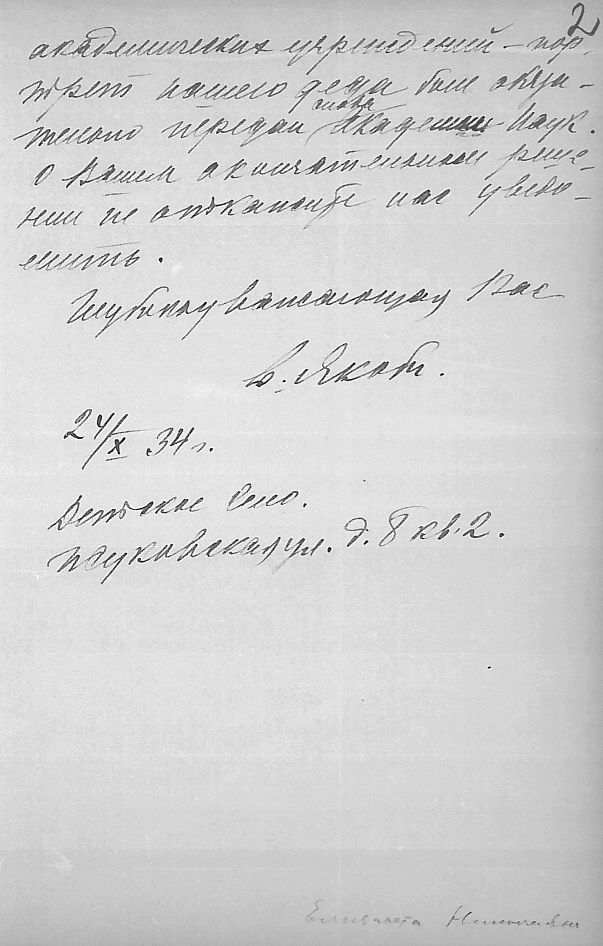 2
академических учреждений – пор-
трет нашего деда был обяза-
тельно передан снова Академии Наук.
О Вашем окончательном реше-
нии не откажите нас уведо-
мить.
Глубокоуважающая Вас
В. Якоби.
24/X 34 г.
Детское Село.
Жуковская ул. д. 8 кв. 2.
Елизавета